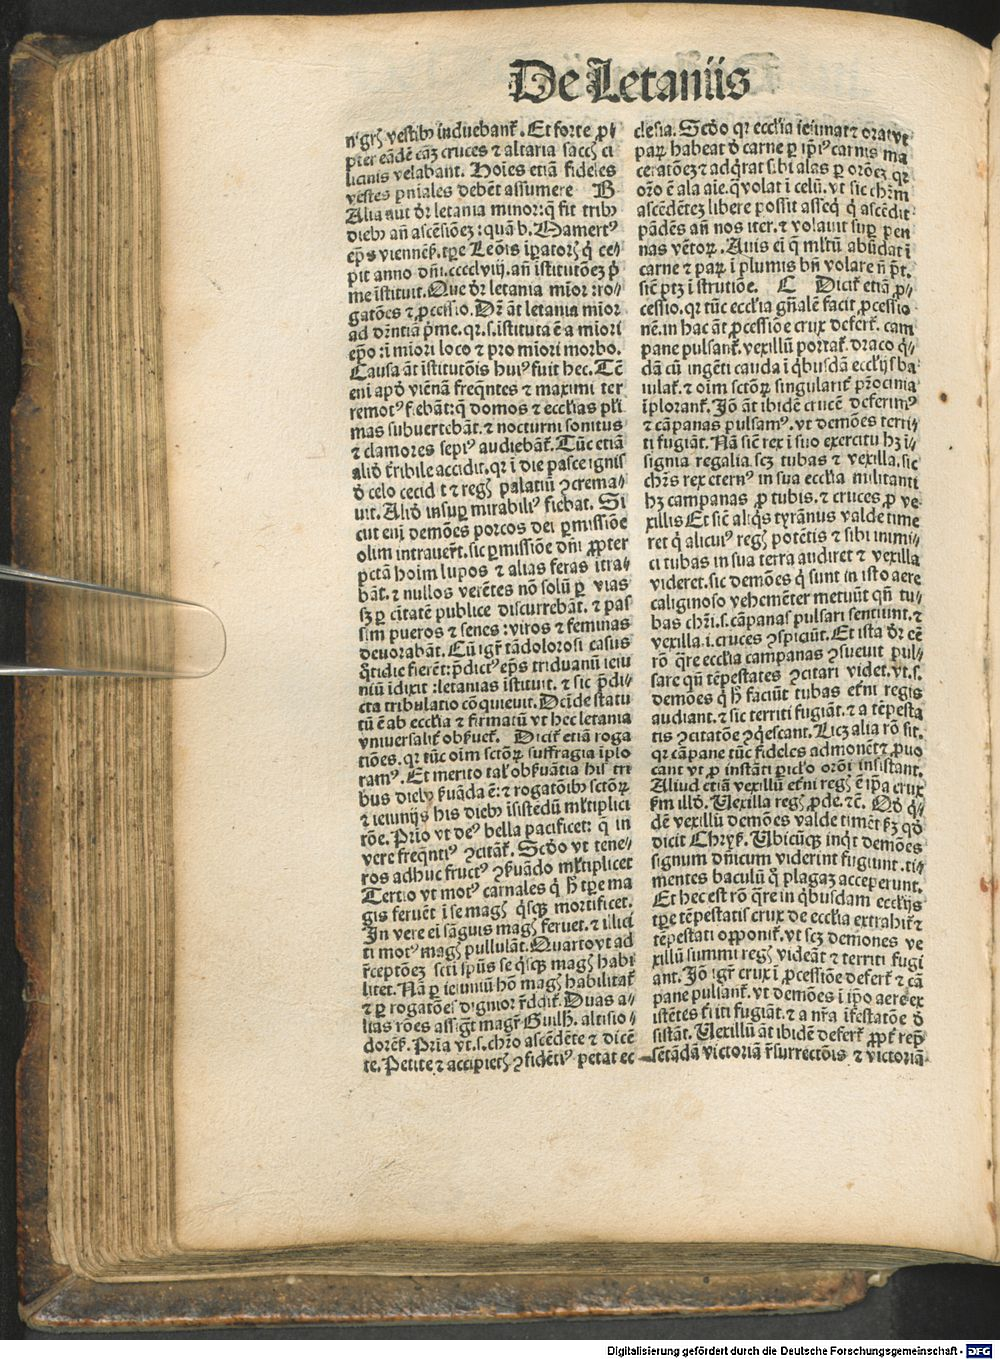 De Letaniis
nigrꝭ vestibꝰ induebant᷑. Et forte ꝓ⸗
pter eādē cāz cruces ⁊ altaria saccꝭ ci
licinis velabant. Hoīes etiā fideles
vestes pniales debēt assumere B
Alia aut dr̄ letania minor: q̄ fit tribꝰ
diebꝰ an̄ ascēsiōez: quā b. Mamertꝰ
ep̄s viennēs̄. tꝑe Leōis īpatorꝭ q̇ ce⸗
pit anno dn̄i.cccclviij. an̄ īstitutōez p̄
me īstituit. Que dr̄ letania mīor: ro⸗
gatōes ⁊ ꝓcessio. Dr̄ āt letania mīor
ad dr̄ntiā p̄me. qr.s. īstituta ē a mīori
ep̄o: ī mīori loco ⁊ pro mīori morbo.
Causa āt īstitutōis huiꝰ fuit hec. Cū
eni apd̄ viēnā freq̄ntes ⁊ maximi ter
remotꝰ fiebāt: q̇ domos ⁊ ecclīas pl̄i
mas subuertebāt. ⁊ nocturni sonitus
⁊ clamores sepiꝰ audiebāt᷑. Tūc etiā
alid̄ tr̄ribile accidit. qr ī die pasce ignis
d̄ celo cecid t ⁊ regꝭ palatiū ꝯcrema⸗
uit. Alid̄ insuꝑ mirabiliꝰ fiebat. Si
cut enī demōes porcos dei ꝑmissiōe
olim intrauer̄t. sic ꝑmissiōe dn̄i ꝓpter
pctā hoīm lupos ⁊ alias feras ītra⸗
bāt. ⁊ nullos verētes nō solū ꝑ vias
sꝫ ꝑ cītatē publice discurrebāt. ⁊ pas
sim pueros ⁊ senes: viros ⁊ feminas
deuorabāt. Cū igr̄ tā dolorosi casus
q̄tidie fierēt: p̄dictꝰ ep̄s triduanū ieiu
niū īdixit: letanias īstituit. ⁊ sic p̄di⸗
cta tribulatio cōquieuit. Deīde statu
tū ē ab ecclīa ⁊ firmatū vt hec letania
vniuersalit᷑ obs̄uet᷑. Dicit᷑ etiā roga
tiōes. qr tūc oīm sctōꝝ suffragia īplo
ramꝰ. Et merito tal̄ obs̄uātia his tri
bus diebꝰ s̄uāda ē: ⁊ rogatōibꝰ sctōꝝ
⁊ ieiunijs his diebꝰ īsistēdū ml̄tiplici
rōe. Prīo vt deꝰ bella pacificet: q̇ in
vere freq̄ntiꝰ ꝯcitāt᷑. Scd̄o vt tene⸗
ros adhuc fructꝰ ꝯs̄uādo ml̄tiplicet
Tertio vt motꝰ carnales q̇ h̄ tꝑe ma
gis feruēt ī se magꝭ q̇sqꝫ mortificet.
In vere ei sāguis magꝭ feruet. ⁊ illici
ti motꝰ magꝭ pullulāt. Quarto vt ad
r̄ceptōez scti spūs se q̇sqꝫ magꝭ habi
litet. Nā ꝑ ieiuniū hō magꝭ habilitat᷑
⁊ ꝑ rogatōes dignior r̄ddit᷑. Duas a⸗
lias rōes assigt̄ magr̄ Guilħ. altisio⸗
dorēs̄. Prīa vt.s. chr̄o ascēdēte ⁊ dicē
te. Petite ⁊ accipietꝭ ꝯfidētiꝰ petat ec
clesia. Scd̄o qr ecclīa ieiunat ⁊ orat vt
paꝝ habeat d̄ carne ꝑ ip̄iꝰ carnis ma
ceratōez ⁊ adq̄rat sibi alas ꝑ orōez. qr
orō ē ala aīe. q̄ volat ī celū. vt sic chr̄m
ascēdētez libere possit asseq̇ q̇ ascēdit
pādēs an̄ nos iter. ⁊ volauit suꝑ pen
nas vētoꝝ. Auis ei q̄ ml̄tū abūdat ī
carne ⁊ paꝝ ī plumis bn̄ volare n̄ pt̄.
sic̄ ptꝫ ī strutiōe. C Dicit᷑ etiā ꝓ⸗
cessio. qr tūc ecclīa gn̄alē facit ꝓcessio
nē. in hac āt ꝓcessiōe crux defert᷑. cam
pane pulsant᷑. vexillū portat᷑. draco q̇⸗
dā cū ingēti cauda ī q̇busdā ecclīs ba
iulat᷑. ⁊ oīm sctōꝝ singularit᷑ pr̄ocinia
īplorant᷑. Iō āt ibidē crucē deferimꝰ
⁊ cāpanas pulsamꝰ. vt demōes terri⸗
ti fugiāt. Nā sic̄ rex ī suo exercitu hꝫ ī⸗
signia regalia scꝫ tubas ⁊ vexilla. sic
chr̄s rex eternꝰ in sua ecclīa militanti
hꝫ campanas ꝓ tubis. ⁊ cruces ꝓ ve⸗
xillis Et sic̄ aliq̇s tyrānus valde time
ret q̇ alicuiꝰ regꝭ potētis ⁊ sibi inimi⸗
ci tubas in sua terra audiret ⁊ vexilla
videret. sic demōes q̇ sunt in isto aere
caliginoso vehemēter metuūt qn̄ tu⸗
bas chr̄i.s. cāpanas pulsari sentiunt. ⁊
vexilla.i. cruces ꝯspiciūt. Et ista dr̄ eē
rō q̄re ecclīa campanas ꝯsueuit pul⸗
sare qn̄ tēpestates ꝯcitari videt. vt.s.
demōes q̇ h̄ faciūt tubas et̄ni regis
audiant. ⁊ sic territi fugiāt. ⁊ a tēpesta
tis ꝯcitatōe ꝯq̇escant. Licꝫ alia rō sit.
qr cāpane tūc fideles admonēt ⁊ ꝓuo
cant vt ꝓ instāti ꝑicl̄o orōi insistant.
Aliud etiā vexillū et̄ni regꝭ ē ip̄a crux
s̄m illd̄. Vexilla regꝭ ꝓde. ⁊c̄. Qd̄ q̇⸗
dē vexillū demōes valde timēt s̄ꝫ qd̄
dicit Chrys̄. Vbicūqꝫ inq̇t demōes
signum dn̄icum viderint fugiunt. ti⸗
mentes baculū q̊ plagaꝫ acceperunt.
Et hec est rō q̄re in q̇busdam ecclīs
tꝑe tēpestatis crux de ecclīa extrahit᷑ ⁊
tēpestati opponit᷑. vt scꝫ demones ve
xillū summi regꝭ videāt ⁊ territi fugi
ant. Iō igr̄ crux ī ꝓcessiōe defert᷑ ⁊ cā
pane pulsant᷑. vt demōes ī ip̄o aere ex
istētes t̄riti fugiāt. ⁊ a nr̄a īfestatōe d̄
sistāt. Vexillū āt ibidē defert᷑ ꝓpt᷑ rep̄
sētādā victoriā r̄surrectōis ⁊ victoriā
Digitalisierung gefördert durch die Deutsche Forschungsgemeinschaft - DFG